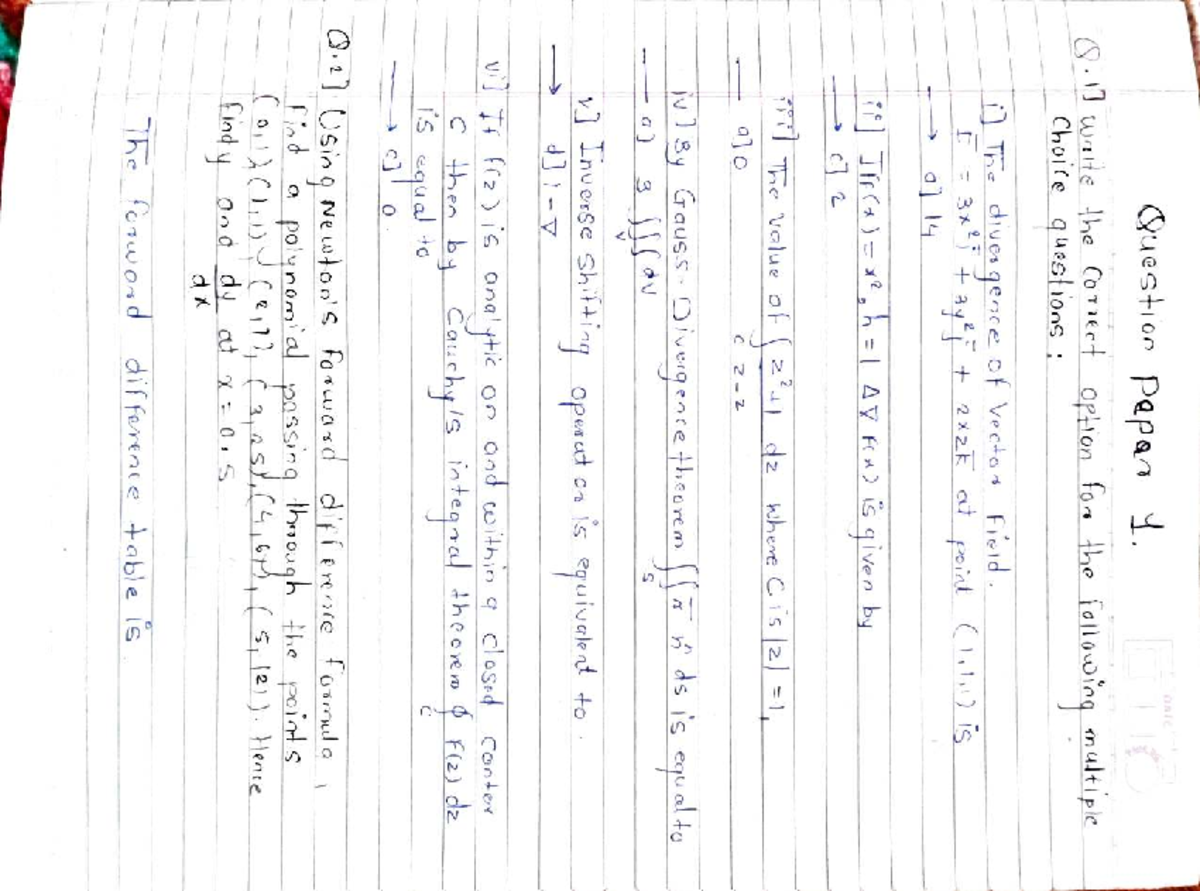 Question Paper 4.
Q.1] write the Correct option for the following multiple
Choice questions :
i] The divergence of vector field.
F̅ = 3x²i̅ + 3y²j̅ + 2xzk̅ at point (1,1,1) is
→ a] 14
ii] If f(x) = x², h = 1 Δ∇ f(x) is given by
→ c] 2
iii] The value of ∫ z²+1 dz where C is |z| = 1,
c z-2
— a] 0
iv] By Gauss Divergence theorem ∫∫ r̅ n̂ ds is equal to
s
— a) 3 ∫∫∫ dv
v
v] Inverse Shifting operator is equivalent to.
→ d] 1-∇
vi] If f(z) is analytic on and within a closed conter
C then by Cauchy's integral theorem ∮ f(z) dz
is equal to c
→ c] 0.
Q.2] Using Newton's forward difference formula,
find a polynomial passing through the points
(0,1), (1,1), (2,7), (3,25), (4,61), (5,121). Hence
find y and dy at x = 0.5
dx
The forward difference table is